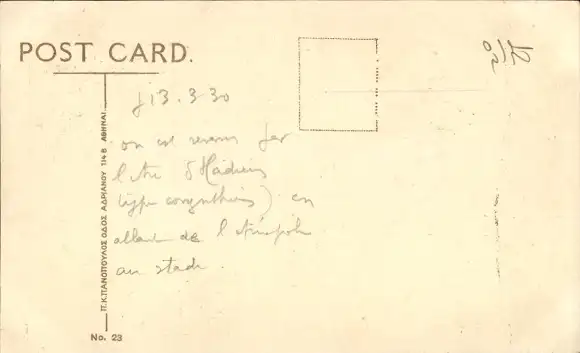 POST CARD.
J 13.3.30
on est revenu par
l'Arc d'Hadrien
(type corynthien) en
allant de l'Acropole
au stade.
Π.Κ.ΠΑΝΟΠΟΥΛΟΣ ΟΔΟΣ ΑΔΡΙΑΝΟΥ 114Β ΑΘΗΝΑΙ
No. 23